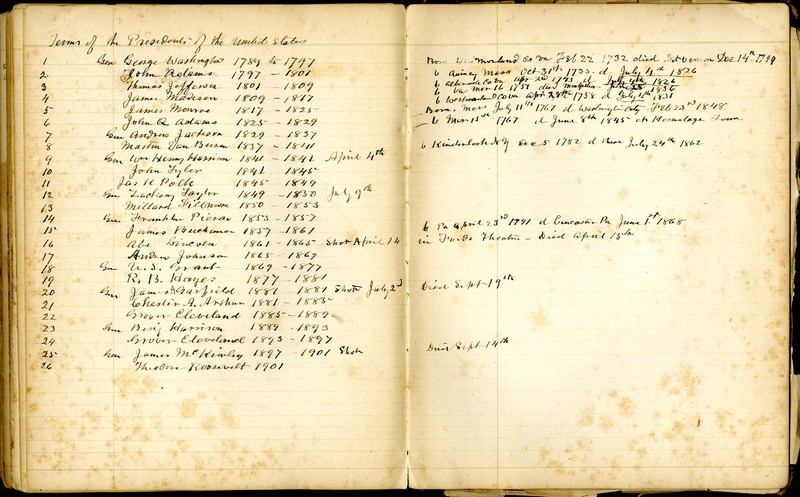 Terms of the Presidents of the United States
1 Gen George Washington 1789 to 1797
2 John Adams 1797 - 1801
3 Thomas Jefferson 1801 - 1809
4 James Madison 1809 - 1817
5 James Monroe 1817 - 1825
6 John Q Adams 1825 - 1829
7 Gen Andrew Jackson 1829 - 1837
8 Martin Van Buren 1837 - 1841
9 Gen Wm Henry Harrison 1841 - 1841 April 4th
10 John Tyler 1841 1845
11 Jas K Polk 1845 1849
12 Gen Zachary Taylor 1849 - 1850 July 9th
13 Millard Fillmore 1850 - 1853
14 Gen Franklin Pierce 1853 - 1857
15 James Buchanan 1857 - 1861
16 Abe Lincoln 1861 - 1865 Shot April 14
17 Andrew Johnson 1865 - 1869
18 Gen U. S. Grant 1869 - 1877
19 R. B. Hayes 1877 - 1881
20 Gen James Garfield 1881 1881 Shot July 2d
21 Chester A. Arthur 1881 - 1885
22 Grover Cleveland 1885 - 1889
23 Gen Benj Harrison 1889 - 1893
24 Grover Cleveland 1893 - 1897
25 Gen James McKinley 1897 - 1901 Shot
26 Theodore Roosevelt 1901
Born Westmorland Co Va Feb 22 1732 died Mt Vernon Dec 14th 1799
b Quincy Mass Oct 31st 1735 d July 4th 1826
b Apr 2d 1743 d July 4th 1826
b Va Mar 16 1751 died 1836
b Westmorland Co Va Apr 28th 1758 d July 4th 1831
Born Mass July 11th 1767 d Washington City Feb 23rd 1848
b Mar 15th 1767 d June 8th 1845 at Hermitage Tenn
b Kinderhook N Y Dec 5 1782 d there July 24th 1862
b Pa April 23rd 1791 d Lancaster Pa June 1st 1868
in Fords Theatre - Died April 15th
Died Sept 19th
Died Sept 14th